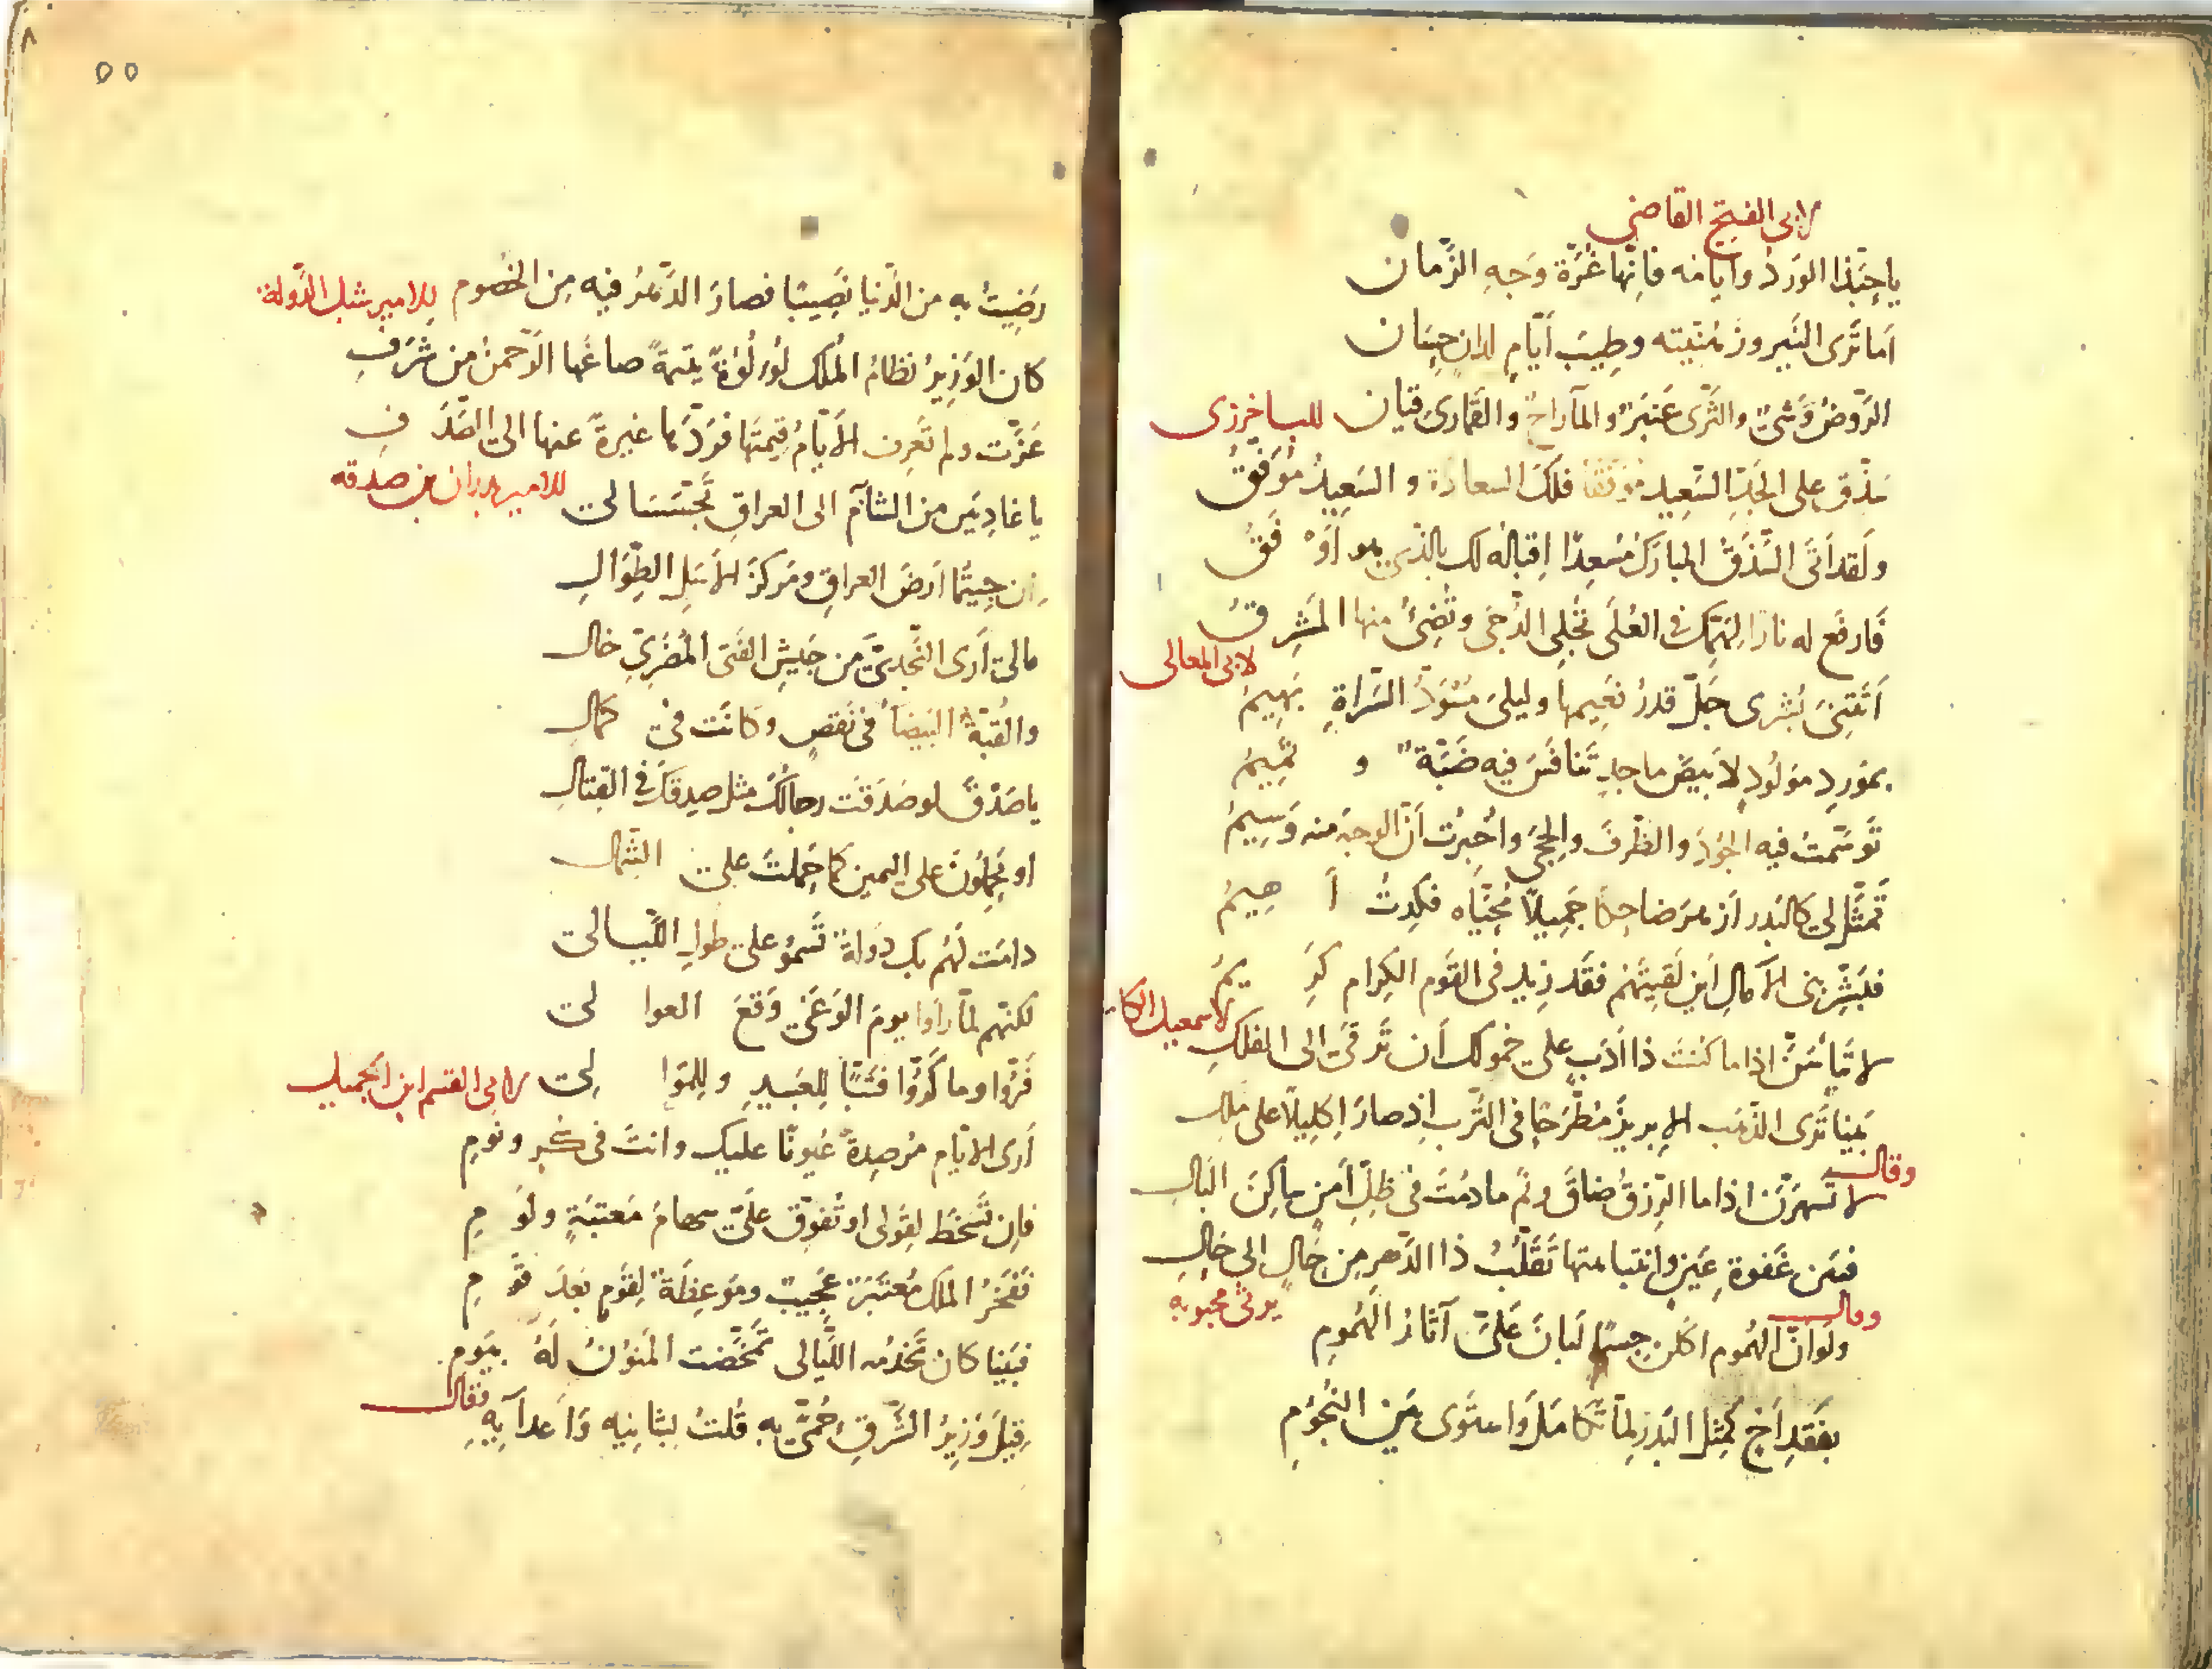 لابي الفتح القاضي
يا حبّذا الوَردُ وايامه فانّها غُرّة وَجهِ الزّمان
اَما تَرى النَيروزَ وطِيبَ اَيّامٍ لدان حِسَان
الرّوضُ وَشىٌ والثّرى عَنبَرٌ والمآ راحٌ والقَمارىَ قيان للباخرزى
سَذّق على الجَدّ السَّعِيد مُوَفّقًا فلَكَ السعادَة والسَعِيدُ مُوَفَّقُ
ولَقد اَتَى السَّذَقُ المبارَكُ مُسعِدًا اِقباله لك بالذى هو اَوْ فَقُ
فَارفَع له نارًا لِهَمِّكَ في العُلَى تُجلِى الدُّجَى وتُضِىُٔ منها المَشرِقُ
لابى المعالى
اَتَتنِىَ بُشرى جَلّ قدرُ نعَيمها وليلىَ مُسَودُّ السَّراةِ بَهِيمُ
بمَورِدِ مَولُودٍ لاَبيَضَ ماجدٍ تَنافَسَ فيه ضَبّةٌ و تمِيمُ
تَوسَّمتُ فيه الجُودَ والظّرفَ والحِجَى واُخبِرتُ اَنّ الوجهَ منه وَسِيمُ
تَمثّل لى كالبَدر اَزهرَ ضاحِكًا جَمِيلاً مُحيّاه فكِدتُ اَ هِيمُ
فبَشّر بنى الآمالِ اَين لَقِيتَهُم فقَد زِيد فى القَوم الكِرام كَرِ يمُ
لاسمعيل الكا
لا تَيأسَنَّ اذا ما كنتَ ذا اَدَبٍ على خمولك اَن تَرقَى الى الفلكِ
بَينا تَرى الذّهَب الاِبريزَ مُطّرَحًا فى التّرب اِذ صارَ اِكليلاً على مَلِكِ
وقال
لا تَسهرَنّ اذا ما الرِّزقُ ضاقَ ونَم ما دمُتَ فى ظِلّ اَمنٍ ساكِنَ البَالِ
فبَين غَفوةِ عَينٍ وانتباهتها تَقَلّبُ ذا الدّهرِ مِن حَالٍ الى حَالِ
وقال يرثى محبوبه
ولَو انّ الهُموم اكلن جِسمًا لَبانَ عَلَىّ آثارُ الهُمومِ
بفَقدِ اَخٍ كمِثل البَدرِ لمّا تكامَلَ واستَوى بَين النُجُومِ
رَضِيتُ به من الدّنيا نصِيبًا فصارَ الدّهرُ فيه مِن الخُصُوم للامير شبل الدّولة
كان الوَزِيرُ نظامُ المُلك لؤلُؤةً يتيمةً صاغَها الرّحمنُ من شَرَفِ
عَزّت ولم تَعرِف الاَيّامُ قِيمتَها فرَدّها غيرةً عنها الى الصّدَ فِ
للامير بدران بن صدقه
يا غادِيَين من الشآم الى العراقِ تَحسّسَا لى
اِن جِيتُما اَرضَ العراقِ ومَركزَ الاَسَلِ الطِوَالِ
مالى اَرى النّجدىّ مَن جَيشِ الفَتى المُضَرِىّ خال
والقُبّة البَيضآ في نَقصٍ وكانَت فى كمالِ
يا صَدقُ لو صَدَقَت رجالُكَ مثل صِدقكَ فى القِتالِ
او يَحمِلُونَ على اليمين كما حَملتَ على الشّمالِ
دامَت لهُم بك دَولةٌ تَسمُو على طولِ اللّيالى
لكنّهم لمّا رَاَوا يومَ الوَغَى وَقعَ العوا لى
فَرّوا وما كَرّوا فتَبًّا للعَبيدِ وللِمَوا لِى لابى القسم ابن الجميل
اَرى الايّام مُرصِدةً عُيونًا عليك وانتَ فى سُكرٍ ونَومِ
فاِن تَسخَط لِقَولى او تُفوِّق عَلَىّ سهامَ مَعتَبَةٍ ولَو مِ
فَفَخرُ المُلك مُعتبَرٌ عَجِيبٌ ومَوعِظَةٌ لِقَومٍ بَعدَ قَو مِ
فبَينا كان تَخدُمه اللّيالى تَمخّضت المَنونُ لَهُ بيَومِ
فقال
قِيلَ وَزِيرُ الشّرقِ حُمّى بهِ قُلتُ لبثانِيه وَاَعدآيِهِ